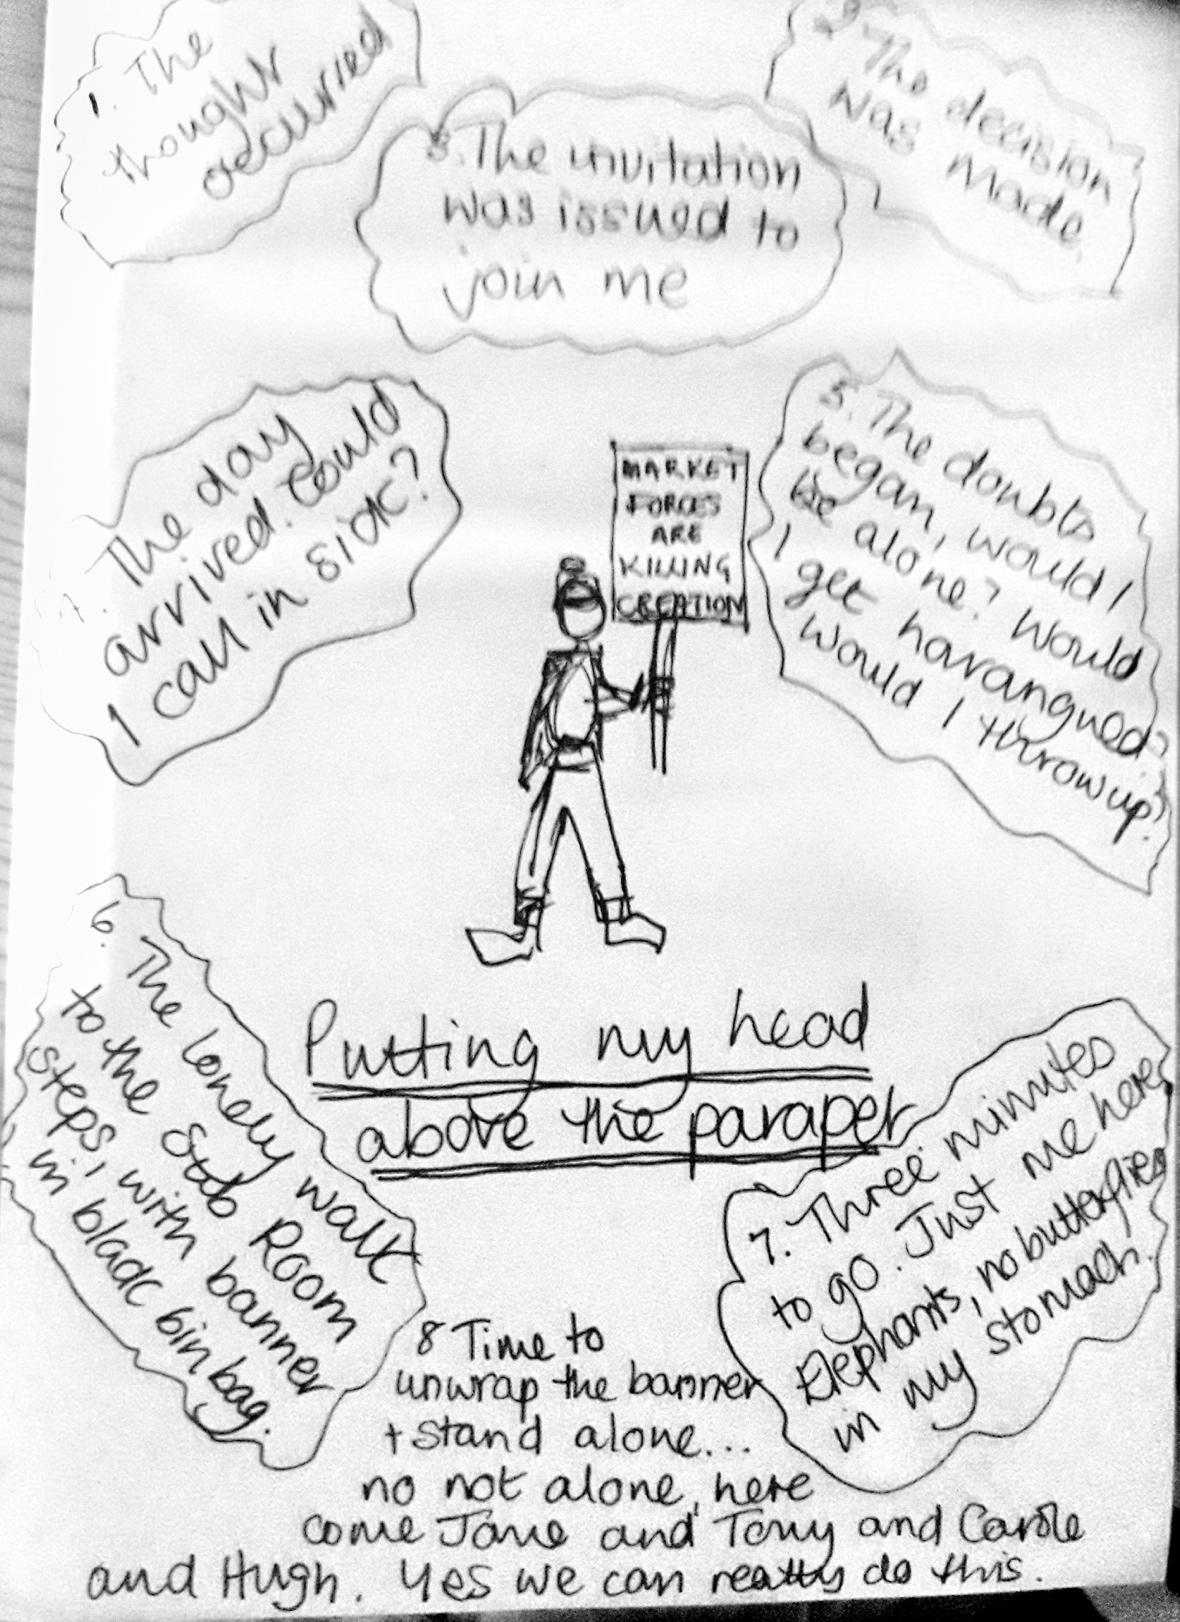 1. The
thought
occurred
2 The decision
was Made.
3. The invitation
was issued to
join me
The day
arrived. Could
I call in sick?
5. The doubts
began, would I
be alone? Would
I get harangued?
Would I throw up?
MARKET
FORCES
ARE
KILLING
CREATION
Putting my head
above the parapet
6. The lonely walk
to the Sub Room
steps, with banner
in black bin bag.
7. Three minutes
to go. Just me here,
Elephants, no butterflies
in my stomach.
8 Time to
unwrap the banner
+ stand alone...
no not alone, here
come Jane and Tony and Carole
and Hugh. Yes we can really do this.